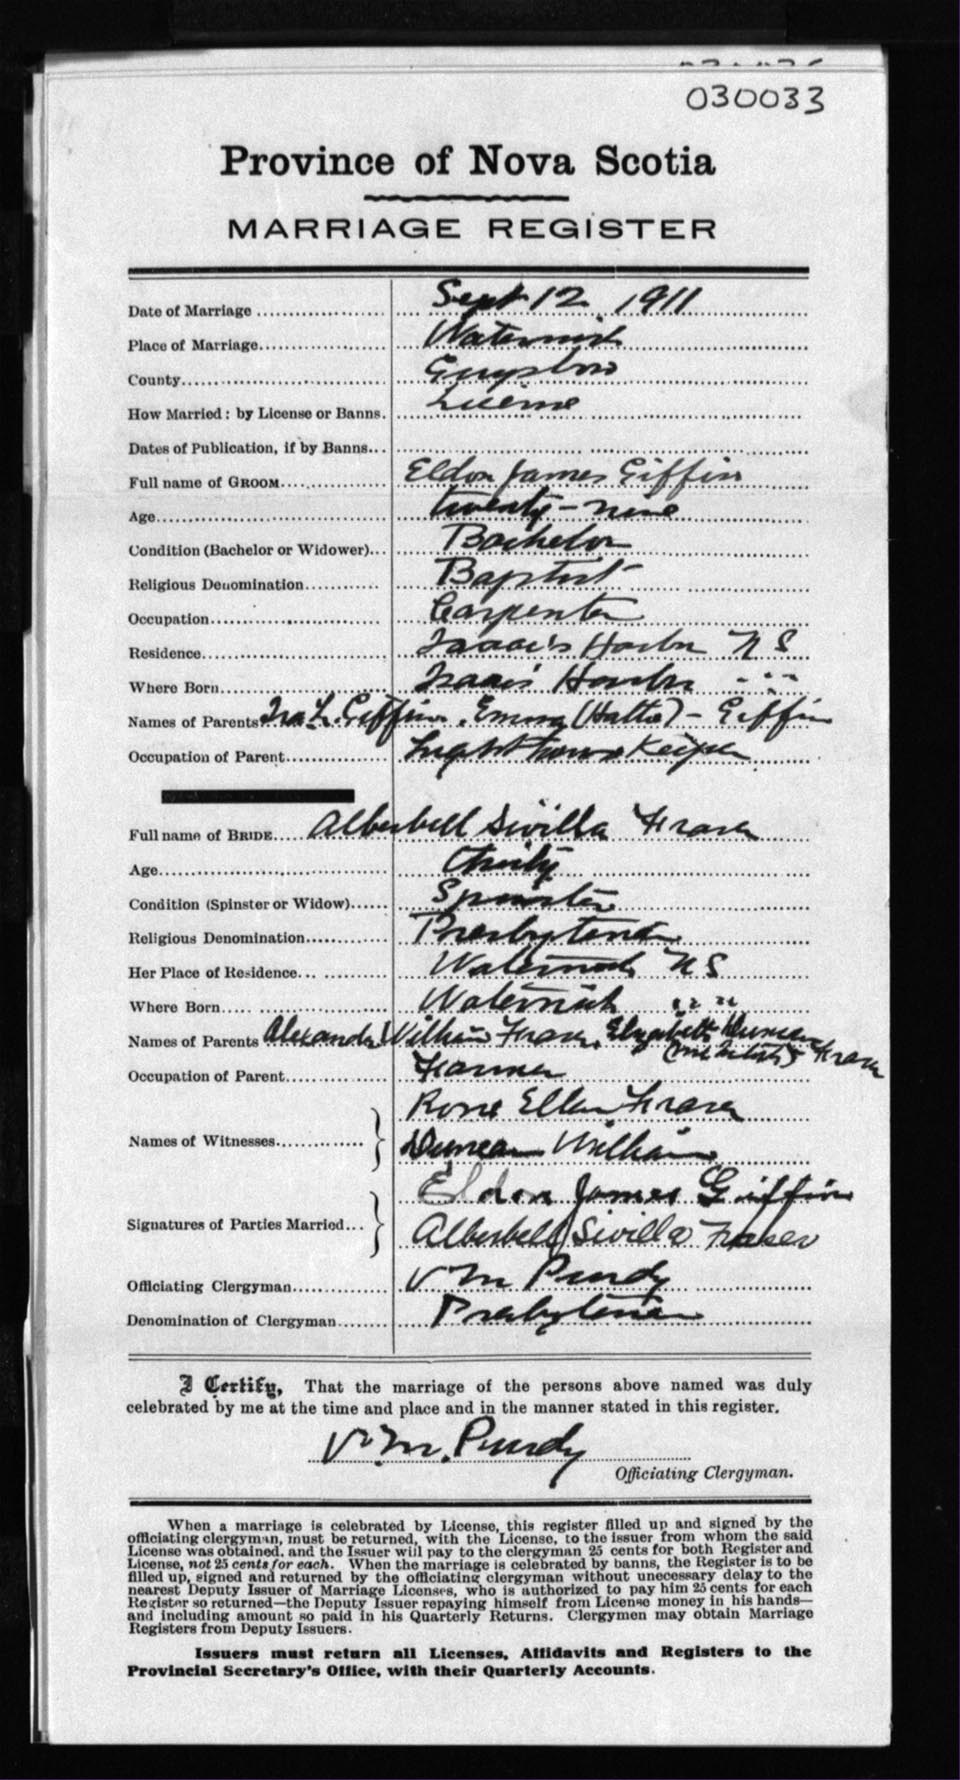 030033
Province of Nova Scotia
MARRIAGE REGISTER
Date of Marriage Sept 12, 1911
Place of Marriage Waternish
County Guysboro
How Married: by License or Banns. License
Dates of Publication, if by Banns...
Full name of GROOM Eldon James Giffin
Age twenty-nine
Condition (Bachelor or Widower)... Bachelor
Religious Denomination Baptist
Occupation Carpenter
Residence Isaac's Harbor N S
Where Born Isaac's Harbor " "
Names of Parents Ira L. Giffin, Emma (Hattie) - Giffin
Occupation of Parent Light house Keeper
Full name of BRIDE Alberbell Sivilla Fraser
Age thirty
Condition (Spinster or Widow) Spinster
Religious Denomination Presbyterian
Her Place of Residence Waternish N S
Where Born Waternish " "
Names of Parents Alexander William Fraser, Elizabeth Duncan
(McIntosh) Fraser
Occupation of Parent Farmer
Rose Ellen Fraser
Names of Witnesses
Duncan William
Eldon James Giffin
Signatures of Parties Married
Alberbell Sivilla Fraser
Officiating Clergyman V M Purdy
Denomination of Clergyman Presbyterian
I Certify, That the marriage of the persons above named was duly
celebrated by me at the time and place and in the manner stated in this register.
V. M. Purdy
Officiating Clergyman.
When a marriage is celebrated by License, this register filled up and signed by the
officiating clergyman, must be returned, with the License, to the issuer from whom the said
License was obtained, and the Issuer will pay to the clergyman 25 cents for both Register and
License, not 25 cents for each. When the marriage is celebrated by banns, the Register is to be
filled up, signed and returned by the officiating clergyman without unnecessary delay to the
nearest Deputy Issuer of Marriage Licenses, who is authorized to pay him 25 cents for each
Register so returned—the Deputy Issuer repaying himself from License money in his hands—
and including amount so paid in his Quarterly Returns. Clergymen may obtain Marriage
Registers from Deputy Issuers.
Issuers must return all Licenses, Affidavits and Registers to the
Provincial Secretary's Office, with their Quarterly Accounts.